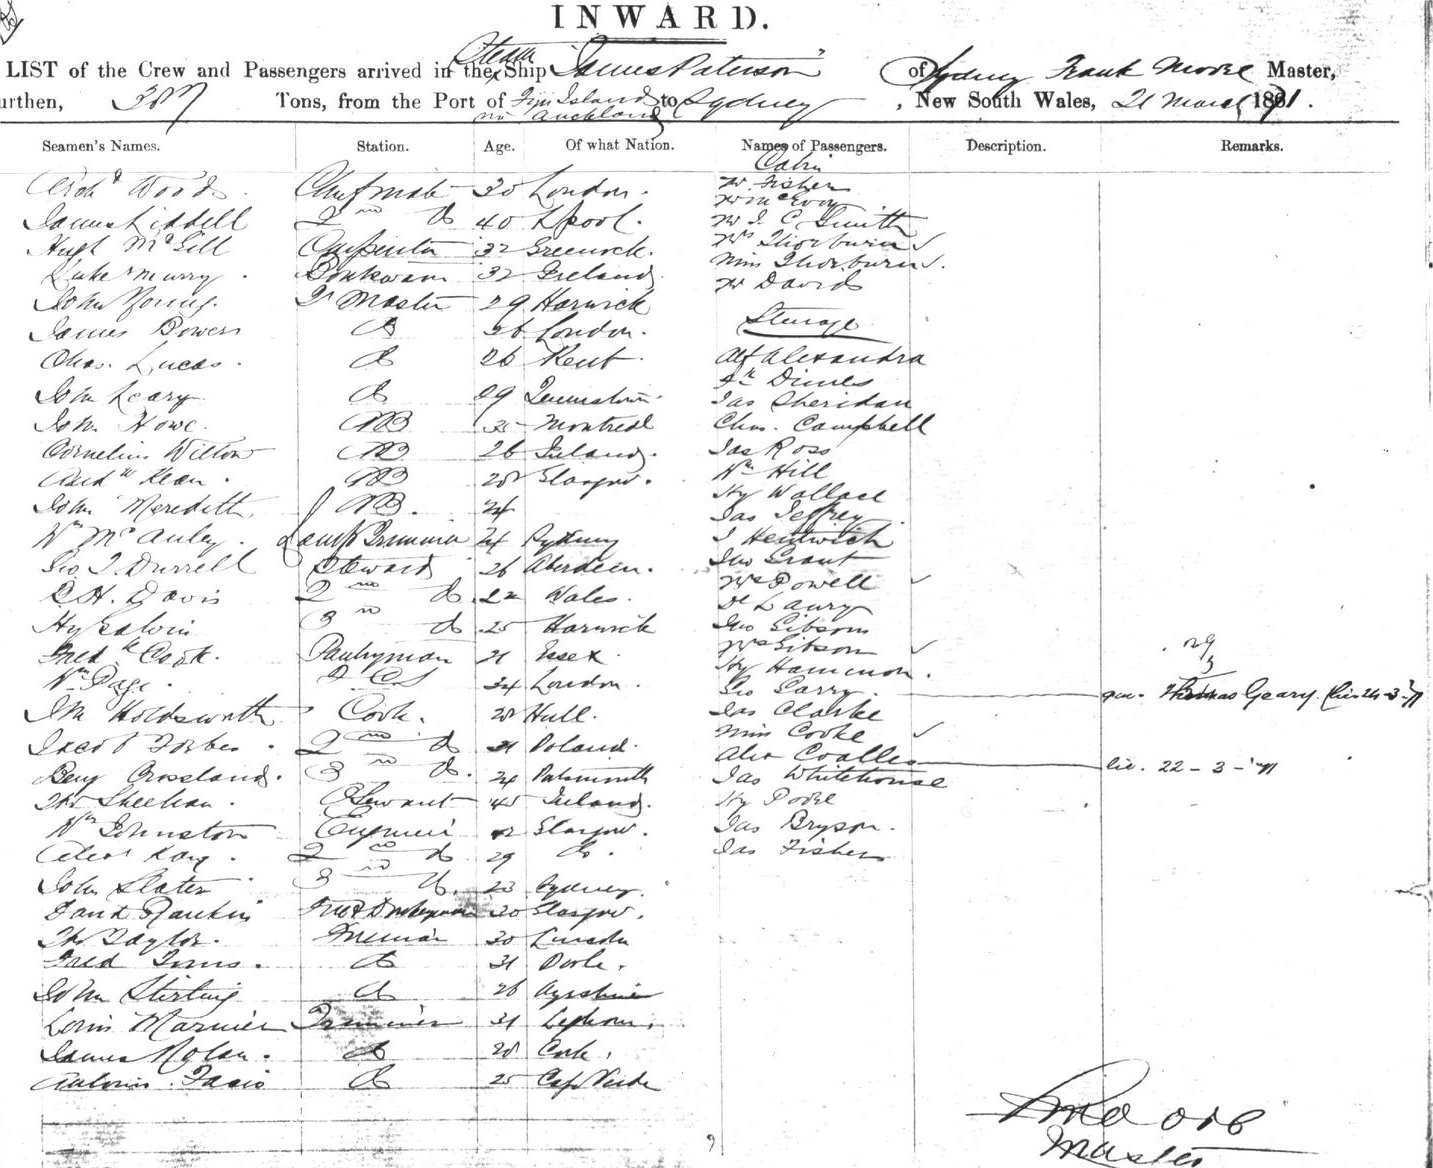 INWARD.
LIST of the Crew and Passengers arrived in the Steam Ship "James Paterson" of Sydney Frank Moore Master,
urthen, Tons, from the Port of Fiji Islands to Sydney, New South Wales, 21 March 1871.
Auckland
Seamen's Names. Station. Age. Of what Nation. Names of Passengers. Description. Remarks.
Cabin
Archd Woods. Chf mate 30 London. Mr. Fisher
Mr McEvoy
James Liddell 2nd do 40 Lpool. Mr J. C. Smith
Hugh McGill Carpenter 32 Greenock. Mrs Thorburn ✓
Luke Murry. 32 Ireland. Miss Thorburn ✓.
John Young. 29 Harwick Mr Davids
James Bowers do 26 London. Steerage
Chas. Lucas. do 26 Kent. Alf Alexandra
Dimes
John Leary do 29 Queenstown. Jas Sheridan
John Howe. AB Montreal Chas. Campbell
Cornelius Wilton AB 26 Ireland. Jas Ross
Kean. AB 28 Glasgow. Wm Hill
Hy Wallace
John Meredith AB. 24 Jas Jeffrey
Wm McAuley. Lamp Trimmer 24 Sydney J Hentwich
Geo J. Durrell Steward 26 Aberdeen. Jno Grant
C H. Davis 2nd do 22 Wales. Mrs Powell ✓
De Laury
Hy Galvin 3rd do. 25 Harwick Jno Gibson
Fredk Cook. Pantryman 21 Essex. Mrs Gibson ✓
Hy Hammon.
Wm Page. 34 London. Geo Garry. Thomas Geary. 24-3-71
Holdsworth Cook. 28 Hull. Jas Clarke
Jacob Forbes. 2nd do 31 Poland. Miss Cooke ✓
Benj Crossland. 3rd do. 24 Portsmouth Alex Coalles lic. 22-3-'71
Jas Whitehouse
Thos Sheehan. Servant 45 Ireland. Hy Poole
Wm Johnston Engineer Glasgow. Jas Bryson.
Kay. 2nd do 29 do. Jas Fisher
John Slater 3rd do. 23 Sydney.
David Rankin 30 Glasgow.
Thos Taylor. Fireman 30 Lincoln
Fred Toms. do 31 Poole.
John Stirling do 26 Ayrshire
Louis Marnier Trimmer 31 Leghorn.
James Nolan. do 28 Cork.
Antonio. do 25 Cape Verde
F Moore
Master